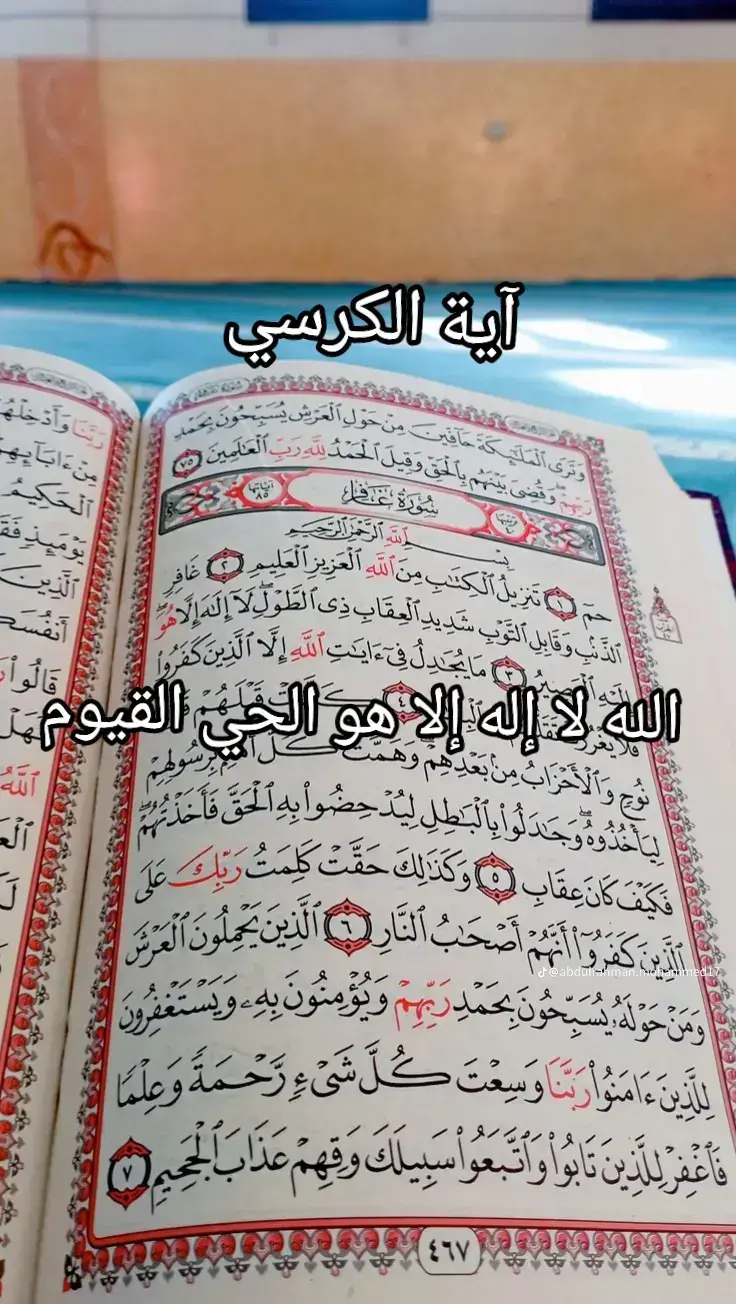 آية الكرسي
وَتَرَى ٱلْمَلَٰٓئِكَةَ حَآفِّينَ مِنْ حَوْلِ ٱلْعَرْشِ يُسَبِّحُونَ بِحَمْدِ
رَبِّهِمْ ۖ وَقُضِىَ بَيْنَهُم بِٱلْحَقِّ وَقِيلَ ٱلْحَمْدُ لِلَّهِ رَبِّ ٱلْعَٰلَمِينَ ٧٥
سُورَةُ غَافِرٍ
بِسْمِ ٱللَّهِ ٱلرَّحْمَٰنِ ٱلرَّحِيمِ
حمٓ ١ تَنزِيلُ ٱلْكِتَٰبِ مِنَ ٱللَّهِ ٱلْعَزِيزِ ٱلْعَلِيمِ ٢ غَافِرِ
ٱلذَّنۢبِ وَقَابِلِ ٱلتَّوْبِ شَدِيدِ ٱلْعِقَابِ ذِى ٱلطَّوْلِ ۖ لَآ إِلَٰهَ إِلَّا هُوَ ۖ
إِلَيْهِ ٱلْمَصِيرُ ٣ مَا يُجَٰدِلُ فِىٓ ءَايَٰتِ ٱللَّهِ إِلَّا ٱلَّذِينَ كَفَرُوا۟
فَلَا يَغْرُرْكَ ٤ قَبْلَهُمْ
الله لا إله إلا هو الحي القيوم
نُوحٍ وَٱلْأَحْزَابُ مِنۢ بَعْدِهِمْ ۖ وَهَمَّتْ كُلُّ أُمَّةٍۭ بِرَسُولِهِمْ
لِيَأْخُذُوهُ ۖ وَجَٰدَلُوا۟ بِٱلْبَٰطِلِ لِيُدْحِضُوا۟ بِهِ ٱلْحَقَّ فَأَخَذْتُهُمْ ۖ
فَكَيْفَ كَانَ عِقَابِ ٥ وَكَذَٰلِكَ حَقَّتْ كَلِمَتُ رَبِّكَ عَلَى
ٱلَّذِينَ كَفَرُوٓا۟ أَنَّهُمْ أَصْحَٰبُ ٱلنَّارِ ٦ ٱلَّذِينَ يَحْمِلُونَ ٱلْعَرْشَ
@abdulrahman.mohammed17
وَمَنْ حَوْلَهُۥ يُسَبِّحُونَ بِحَمْدِ رَبِّهِمْ وَيُؤْمِنُونَ بِهِۦ وَيَسْتَغْفِرُونَ
لِلَّذِينَ ءَامَنُوا۟ رَبَّنَا وَسِعْتَ كُلَّ شَىْءٍ رَّحْمَةً وَعِلْمًا
فَٱغْفِرْ لِلَّذِينَ تَابُوا۟ وَٱتَّبَعُوا۟ سَبِيلَكَ وَقِهِمْ عَذَابَ ٱلْجَحِيمِ ٧
٤٦٧
رَبَّنَا وَأَدْخِلْهُمْ
مِنْ ءَابَآئِهِمْ
ٱلْحَكِيمُ
يَوْمَئِذٍ
ٱلَّذِينَ
أَنفُسَكُمْ
قَالُوا۟